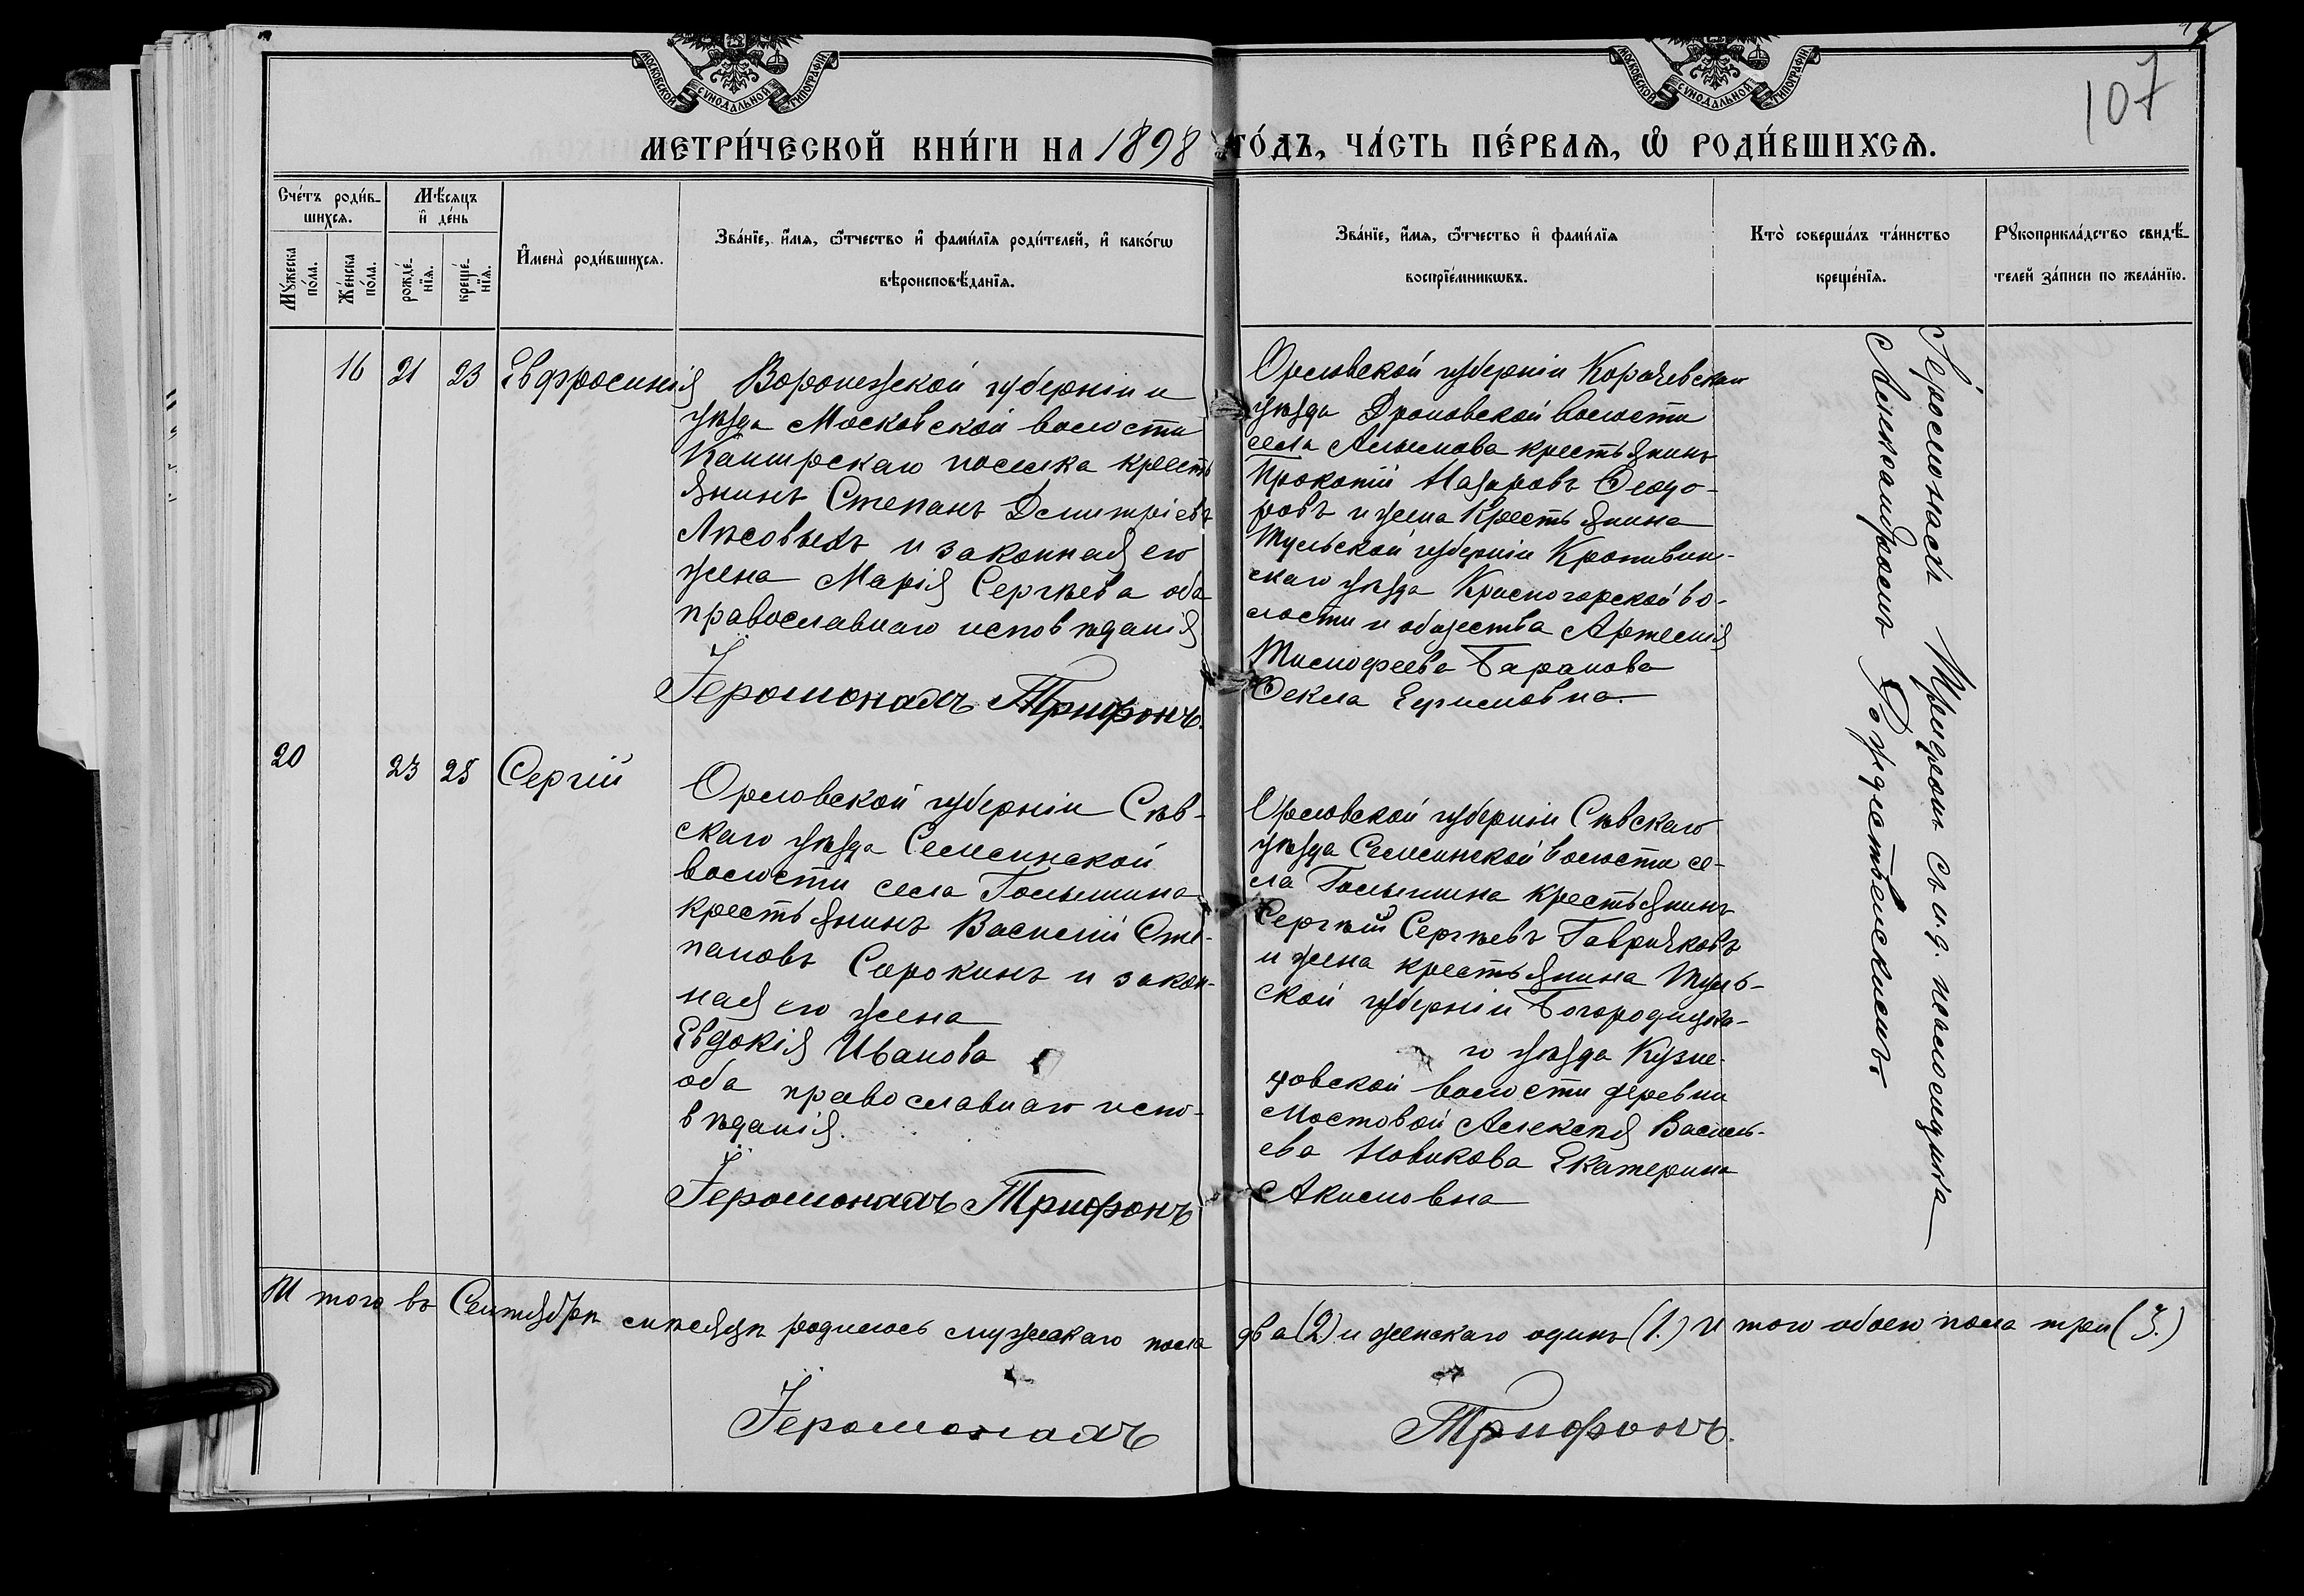 МОСКОВСКОЙ СѴНОДАЛЬНОЙ ТИПОГРАФІИ.
МОСКОВСКОЙ СѴНОДАЛЬНОЙ ТИПОГРАФІИ.
107
МЕТРИ́ЧЕСКОЙ КНИ́ГИ НА 1898 ГО́ДЪ, ЧА́СТЬ ПЕ́РВАѦ, Ѡ҆ РОДИ́ВШИХСѦ.
Сче́тъ роди́в-
шихсѧ.
Мꙋ́жеска
по́ла.
Же́нска
по́ла.
Мѣ́сѧцъ
и҆ де́нь
рожде́-
нїѧ.
креще́-
нїѧ.
И҆мена̀ роди́вшихсѧ.
Зва́нїе, и҆́мѧ, ѻ҆́тчество и҆ фами́лїѧ роди́телей, и҆ како́гѡ
вѣроисповѣ́данїѧ.
Зва́нїе, и҆́мѧ, ѻ҆́тчество и҆ фами́лїѧ
воспрїе́мникѡвъ.
Кто̀ соверша́лъ та́инство
креще́нїѧ.
Рꙋкоприкла́дство свидѣ́-
телей за́писи по жела́нїю.
16 21 23 Евфросинія
Воронежской губерніи и
уѣзда Московской волости
Каширскаго поселка кресть
янинъ Степанъ Дмитріевъ
Лѣсовыхъ и законная его
жена Марія Сергѣева оба
православнаго исповѣданія
Іеромонахъ Трифонъ.
Орловской губерніи Карачевскаго
уѣзда Дроновской волости
села Алымова крестьянинъ
Прокопій Назаровъ Ѳедо-
ровъ и жена крестьянина
Тульской губерніи Крапивин-
скаго уѣзда Красногорской во-
лости и общества Артемія
Тимоѳеева Баранова
Ѳекла Ефимовна.
20 23 25 Сергій
Орловской губерніи Сѣв-
скаго уѣзда Селесинской
волости села Голышина
крестьянинъ Василій Сте-
пановъ Сорокинъ и закон-
ная его жена
Евдокія Иванова
оба православнаго испо-
вѣданія.
Іеромонахъ Трифонъ
Орловской губерніи Сѣвскаго
уѣзда Селесинской волости се-
ла Голышина крестьянинъ
Сергѣй Сергѣевъ Гавриковъ
и жена крестьянина Туль-
ской губерніи Богородицка-
го уѣзда Кузне-
цовской волости деревни
Мостовой Алексѣя Василь-
ева Новикова Екатерина
Акимовна
Іеромонахъ Трифонъ съ и.д. псаломщика
Александромъ Рождественскимъ.
И того въ Сентябрѣ мѣсяцѣ родилось мужескаго пола два (2) и женскаго одинъ (1.) И того обоего пола три (3.)
Іеромонахъ Трифонъ.